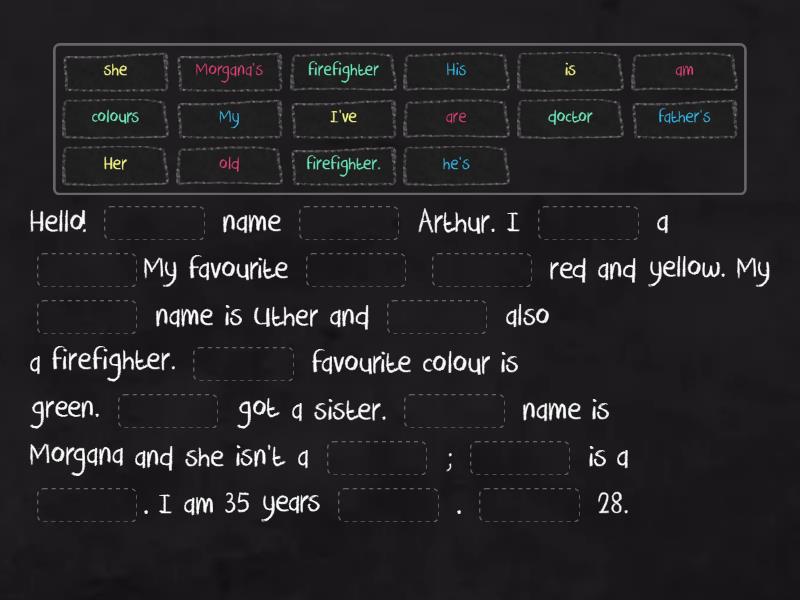 she Morgana's firefighter His is am
colours My I've are doctor father's
Her old firefighter. he's
Hello! name Arthur. I a
My favourite red and yellow. My
name is Uther and also
a firefighter. favourite colour is
green. got a sister. name is
Morgana and she isn't a ; is a
. I am 35 years . 28.